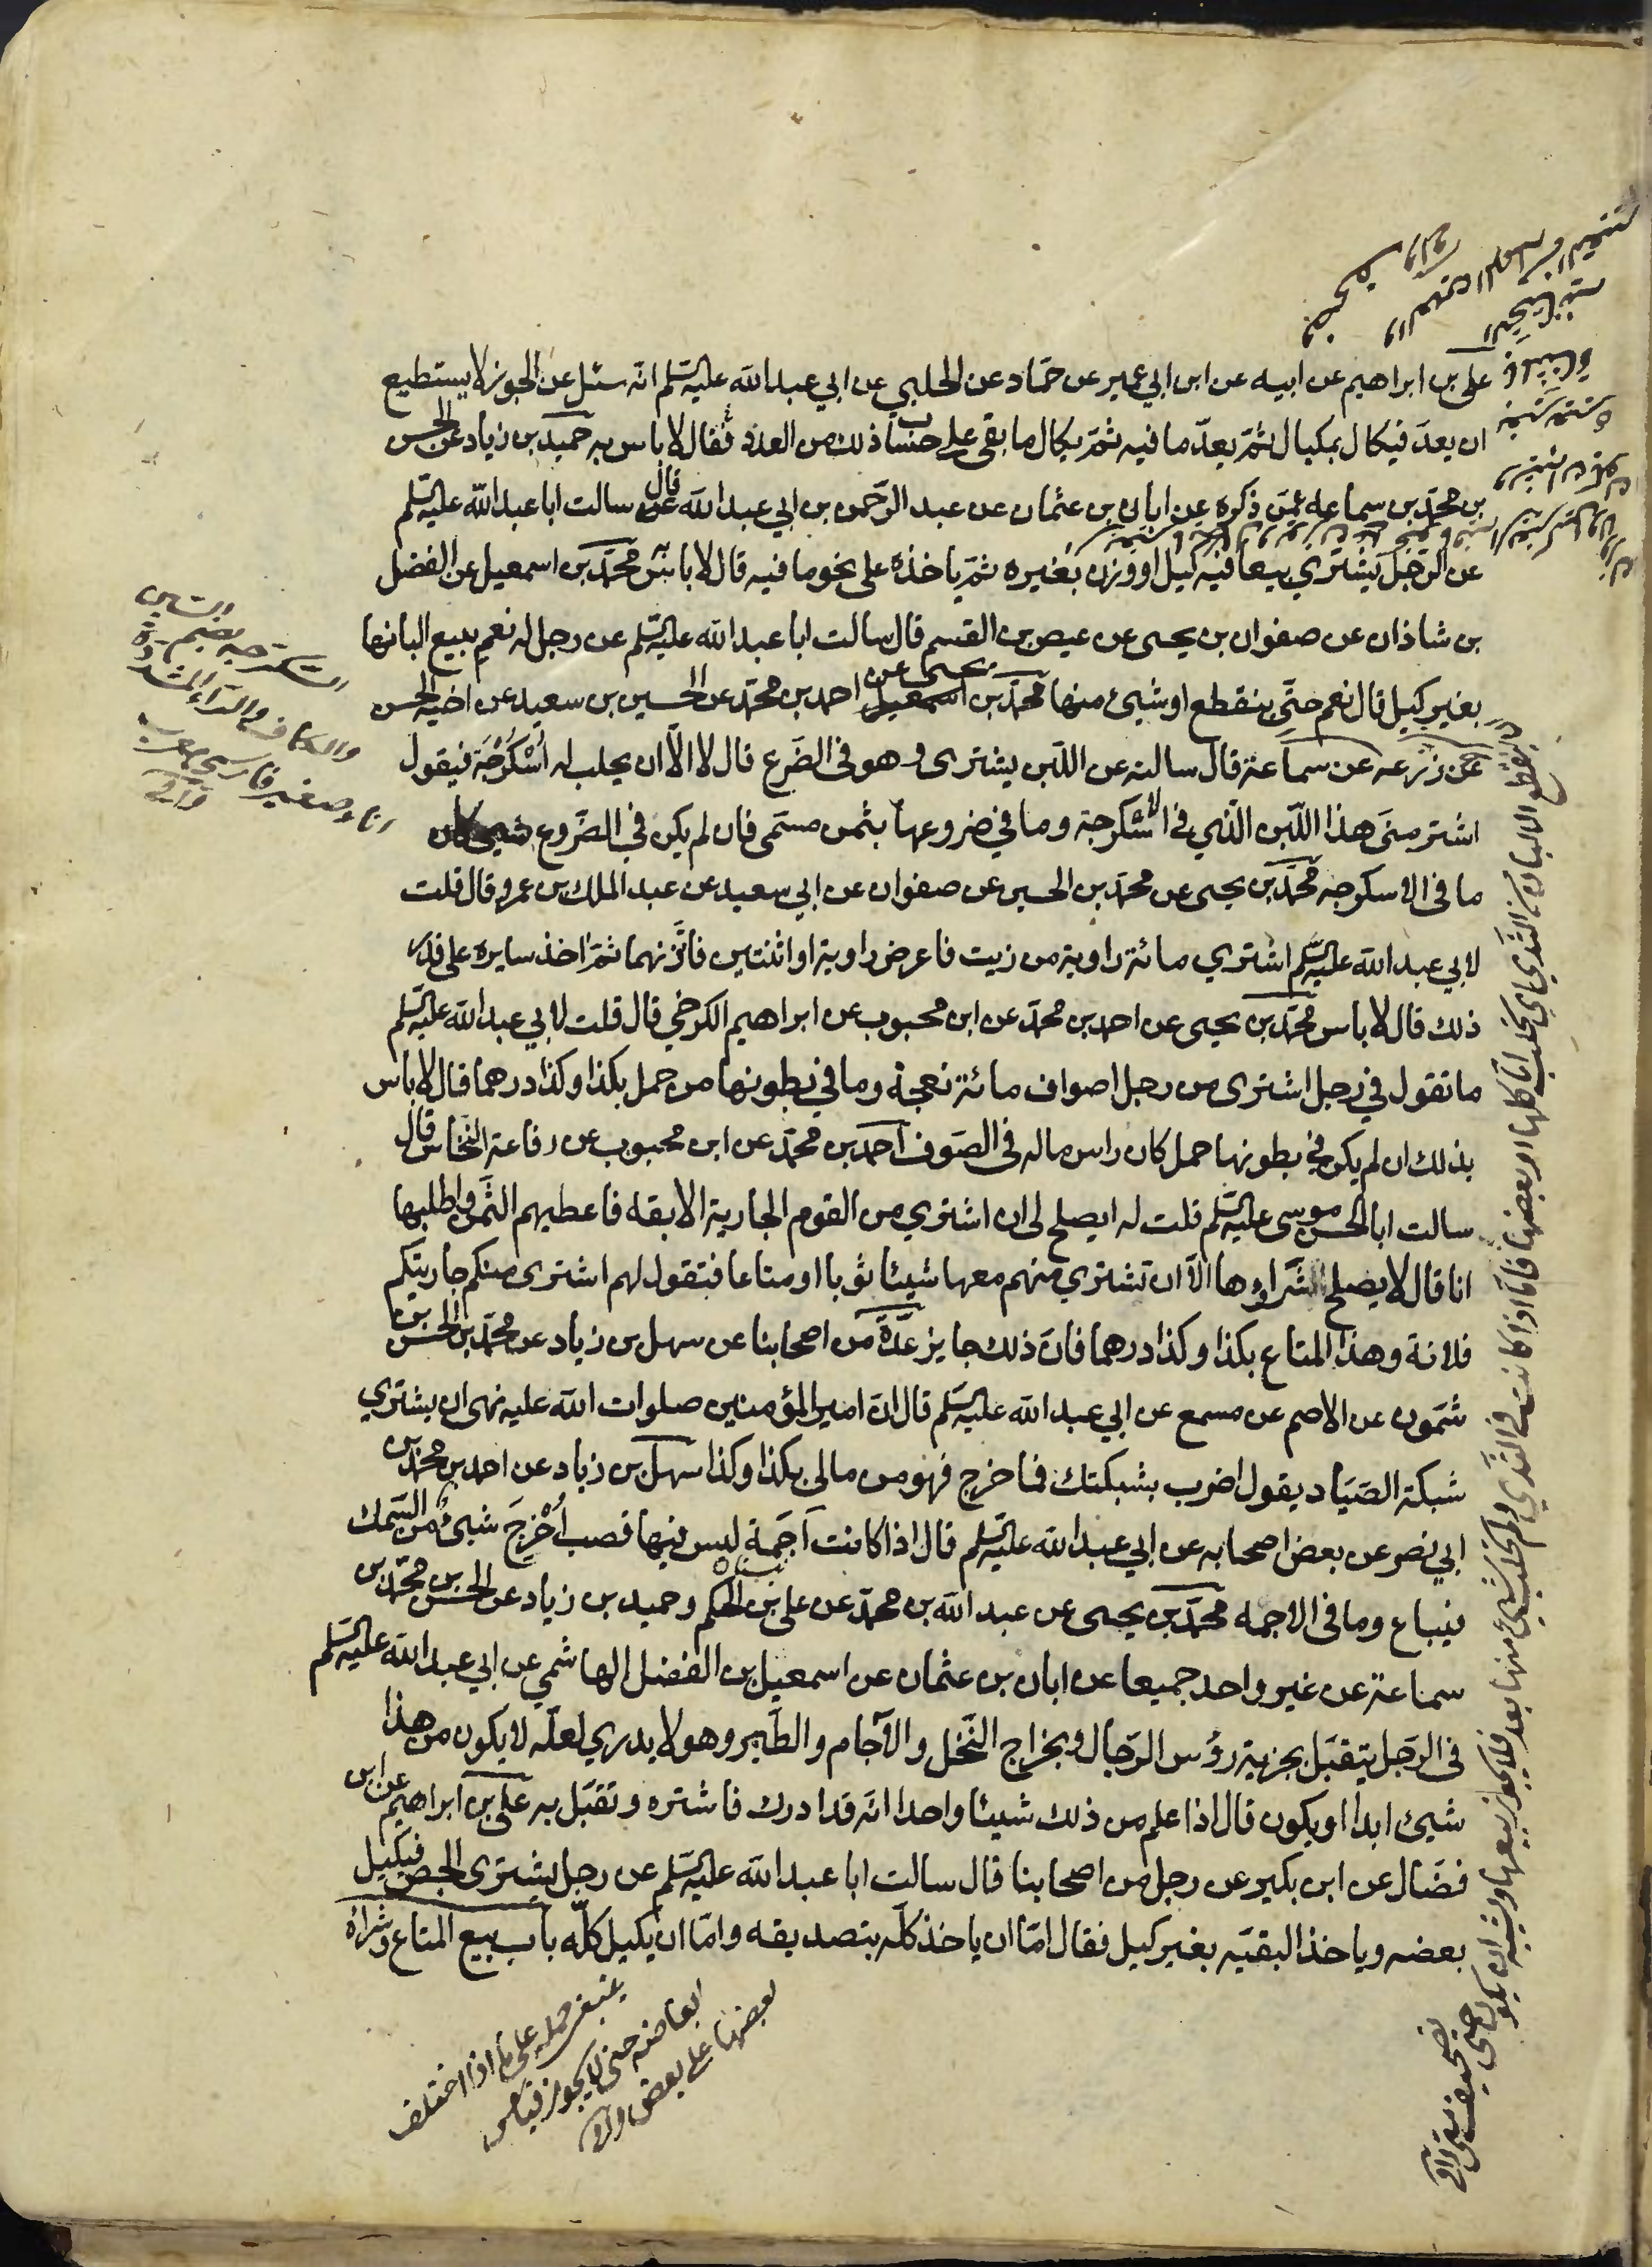 علي بن ابراهيم عن ابيه عن ابن ابي عمير عن حمّاد عن الحلبي عن ابي عبد الله عليه السّلم انّه سئل عن الجوز لا يستطيع
ان يعدّ فيكال بمكيال ثمّ يعدّ ما فيه ثمّ يكال ما بقى على حساب ذلك من العدد فقال لا باس به حميد بن زياد عن الحسن
بن محمّد بن سماعه عمّن ذكره عن ابان بن عثمان عن عبد الرّحمن بن ابي عبد الله قال سالت ابا عبد الله عليه السّلم
عن الرّجل يشتري بيعا فيه كيل او وزن بغيره ثمّ ياخذه على نحو ما فيه قال لا باس محمّد بن اسمعيل عن الفضل
بن شاذان عن صفوان بن يحيى عن عيص بن القسم قال سالت ابا عبد الله عليه السّلم عن رجل له نعم يبيع البانها
بغير كيل قال نعم حتّى ينقطع او شيئ منها محمّد بن يحيى عن احمد بن محمّد عن الحسين بن سعيد عن اخيه الحسن
عن زرعه عن سماعة قال سالته عن اللّبن يشترى وهو في الضّرع قال لا الّا ان يحلب له اُسْكرّجَة فيقول
اشتر منّى هذا اللّبن الّذي في الاسكرجة وما في ضروعها بثمن مسمّى فان لم يكن في الضّروع شيئ كان
ما في الاسكرجه محمّد بن يحيى عن محمّد بن الحسين عن صفوان عن ابي سعيد عن عبد الملك بن عمرو قال قلت
لابي عبد الله عليه السّلم اشتري مائة راوية من زيت فاعرض راوية او اثنتين فاتّزنهما ثمّ اخذ سايره على قدر
ذلك قال لا باس محمّد بن يحيى عن احمد بن محمّد عن ابن محبوب عن ابراهيم الكرخي قال قلت لابي عبد الله عليه السّلم
ما تقول في رجل اشترى من رجل اصواف مائة نعجة وما في بطونها من حمل بكذا وكذا درهما قال لا باس
بذلك ان لم يكن في بطونها حمل كان راس ماله في الصّوف احمد بن محمّد عن ابن محبوب عن رفاعة النّخاس قال
سالت ابا الحسن موسى عليه السّلم قلت له ايصلح لى ان اشتري من القوم الجارية الابقه فاعطيهم الثّمن واطلبها
انا قال لا يصلح شراؤها الّا ان تشتري منهم معها شيئا ثوبا او متاعا فتقول لهم اشترى منكم جاريتكم
فلانة وهذا المتاع بكذا وكذا درهما فانّ ذلك جايز عدّة من اصحابنا عن سهل بن زياد عن محمّد بن الحسن بن
شمّون عن الاصم عن مسمع عن ابي عبد الله عليه السّلم قال انّ امير المؤمنين صلوات الله عليه نهى ان يشتري
شبكة الصّيّاد يقول اضرب بشبكتك فما خرج فهو من مالى بكذا وكذا سهل بن زياد عن احمد بن محمّد بن
ابي نصر عن بعض اصحابه عن ابي عبد الله عليه السّلم قال اذا كانت آجمة ليس فيها قصب اُخرِجَ شيئ من السّمك
فيباع وما في الاجمه محمّد بن يحيى عن عبد الله بن محمّد عن على بن الحكم وحميد بن زياد عن الحسن بن محمّد بن
سماعة عن غير واحد جميعا عن ابان بن عثمان عن اسمعيل بن الفضل الهاشمي عن ابي عبد الله عليه السّلم
في الرّجل يتقبّل بجزية رؤس الرّجال وبخراج النّخل والآجام والطّير وهو لا يدري لعلّه لا يكون من هذا
شيئ ابدا او يكون قال اذا علم من ذلك شيئا واحدا انّه قد ادرك فاشتره وتقبّل به على بن ابراهيم عن ابن
فضّال عن ابن بكير عن رجل من اصحابنا قال سالت ابا عبد الله عليه السّلم عن رجل يشترى الجص فيكيل
بعضه وياخذ البقيّه بغير كيل فقال امّا ان ياخذ كلّه بتصديقه وامّا ان يكيل كلّه باب بيع المتاع وشراؤه
السكرّجه بضم السين
والكاف والرّاء المشدّدة
اناء صغير فارسي معرب
وافي
ينقطع الالبان من الثدي اي يحلب امّا كلها او بعضها فامّا اذا كانت في الثدي ولم يحلب شيئ منها بعد فلا يجوز بيعها ويشبه ان يكون حتى
تصحيف متى وافي
ينبغي حمله على ما اذا اختلف
ابعاضه حتى لا يجوز قياس
بعضها على بعض وافي